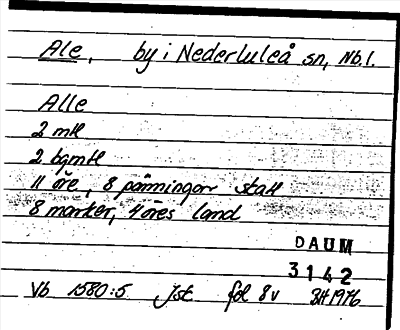 Ale, by i Nederluleå sn, Nb.l.
Alle
2 mtl
2 bgmtl
11 öre, 8 pänningar skatt
8 marker, 4 öres land
DAUM
3142
Vb 1580:5 Jst fol 8v BH 1976